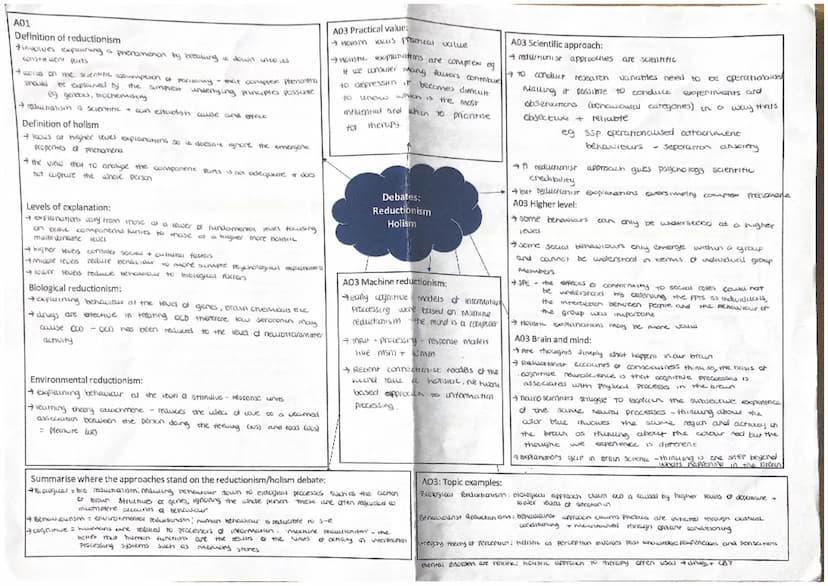 A01
Definition of reductionism
→ involves explaining a phenomenon by breaking it down into its
constituent parts
→ works on the scientific assumption of parsimony - that complex phenomena
should be explained by the simplest underlying principles possible
eg genetics, biochemistry
→ reductionism is scientific + can establish cause and effect
Definition of holism
→ looks at higher level explanations so it doesn't ignore the emergent
properties of phenomena
→ the view that to analyse the component parts is not adequate + does
not capture the whole person
Levels of explanation:
→ explanations vary from those at a lower or fundamental level focusing
on basic components/units to those at a higher more holistic
multivariate level
→ higher levels consider social + cultural factors
→ middle levels reduce behaviour to more simple psychological explanations
→ lower levels reduce behaviour to biological factors
Biological reductionism:
→ explaining behaviour at the level of genes, brain chemicals etc
→ drugs are effective in treating OCD therefore low serotonin may
cause OCD - OCD has been reduced to the level of neurotransmitter
activity
Environmental reductionism:
→ explaining behaviour at the level of stimulus - response links
→ learning theory attachment - reduces the idea of love to a learned
association between the person doing the feeding (NS) and food (UCS)
= pleasure
A03 Practical value:
→ Holism lacks practical value
→ Holistic explanations are complex eg
if we consider many factors contribute
to depression it becomes difficult
to know which is the most
influential and which to prioritise
for therapy
Debates:
Reductionism
Holism
A03 Machine reductionism:
→ Early cognitive models of information
processing were based on machine
reductionism - the mind is a computer
→ input - processing - response models
like
→ Recent connectionist models of the
mind take a holistic, network
based approach to information
processing
A03 Scientific approach:
→ reductionist approaches are scientific
→ to conduct research variables need to be operationalised
making it possible to conduct experiments and
observations (behavioural categories) in a way that's
objective + reliable
eg SSP operationalised attachment
behaviours - separation anxiety
→ A reductionist approach gives psychology scientific
credibility
→ but reductionist explanations oversimplify complex phenomena
A03 Higher level:
→ some behaviours can only be understood at a higher
level
→ some social behaviours only emerge within a group
and cannot be understood in terms of individual group
members
→ SPE - the effects of conformity to social roles could not
be understood by observing the PPTS as individuals,
the interaction between people and the behaviour of
the group was important
→ Holistic explanations may be more valid
A03 Brain and mind:
→ Are thoughts simply what happens in our brain
→ Reductionist accounts of consciousness thinking, the basis of
cognitive neuroscience is that cognitive processes is
associated with physical processes in the brain
→ Neuroscientists struggle to explain the subjective experience
of the same neural processes - thinking about the
color blue involves the same region and activity in
the brain as thinking about the colour red but the
thought we experience is different
→ Explanatory gap in brain science - thinking is one step beyond
whats happening in the brain
Summarise where the approaches stand on the reductionism/holism debate:
→ Biological = bio reductionism, reducing behaviour down to biological processes such as the action
of brain structures or genes, ignoring the whole person. These are often regarded as
incomplete accounts of behaviour
→ Behaviourism = environmental reductionism; human behaviour is reducible to S-R
→ cognitive = humans are related to processors of information. machine reductionism - the
belief that human functions are the results of the units of activity in information
processing systems such as memory stores
A03: Topic examples:
Biological reductionism: biological approach claim OCD is caused by higher levels of dopamine +
lower levels of serotonin
Behaviourist reductionism: behaviourist approach claims phobias are initiated through classical
conditioning + maintained through operant conditioning
Gregory theory of perception: holistic as perception involves past knowledge/experiences and sensations
mental disorders are holistic: holistic approach to therapy often used → drugs + CBT